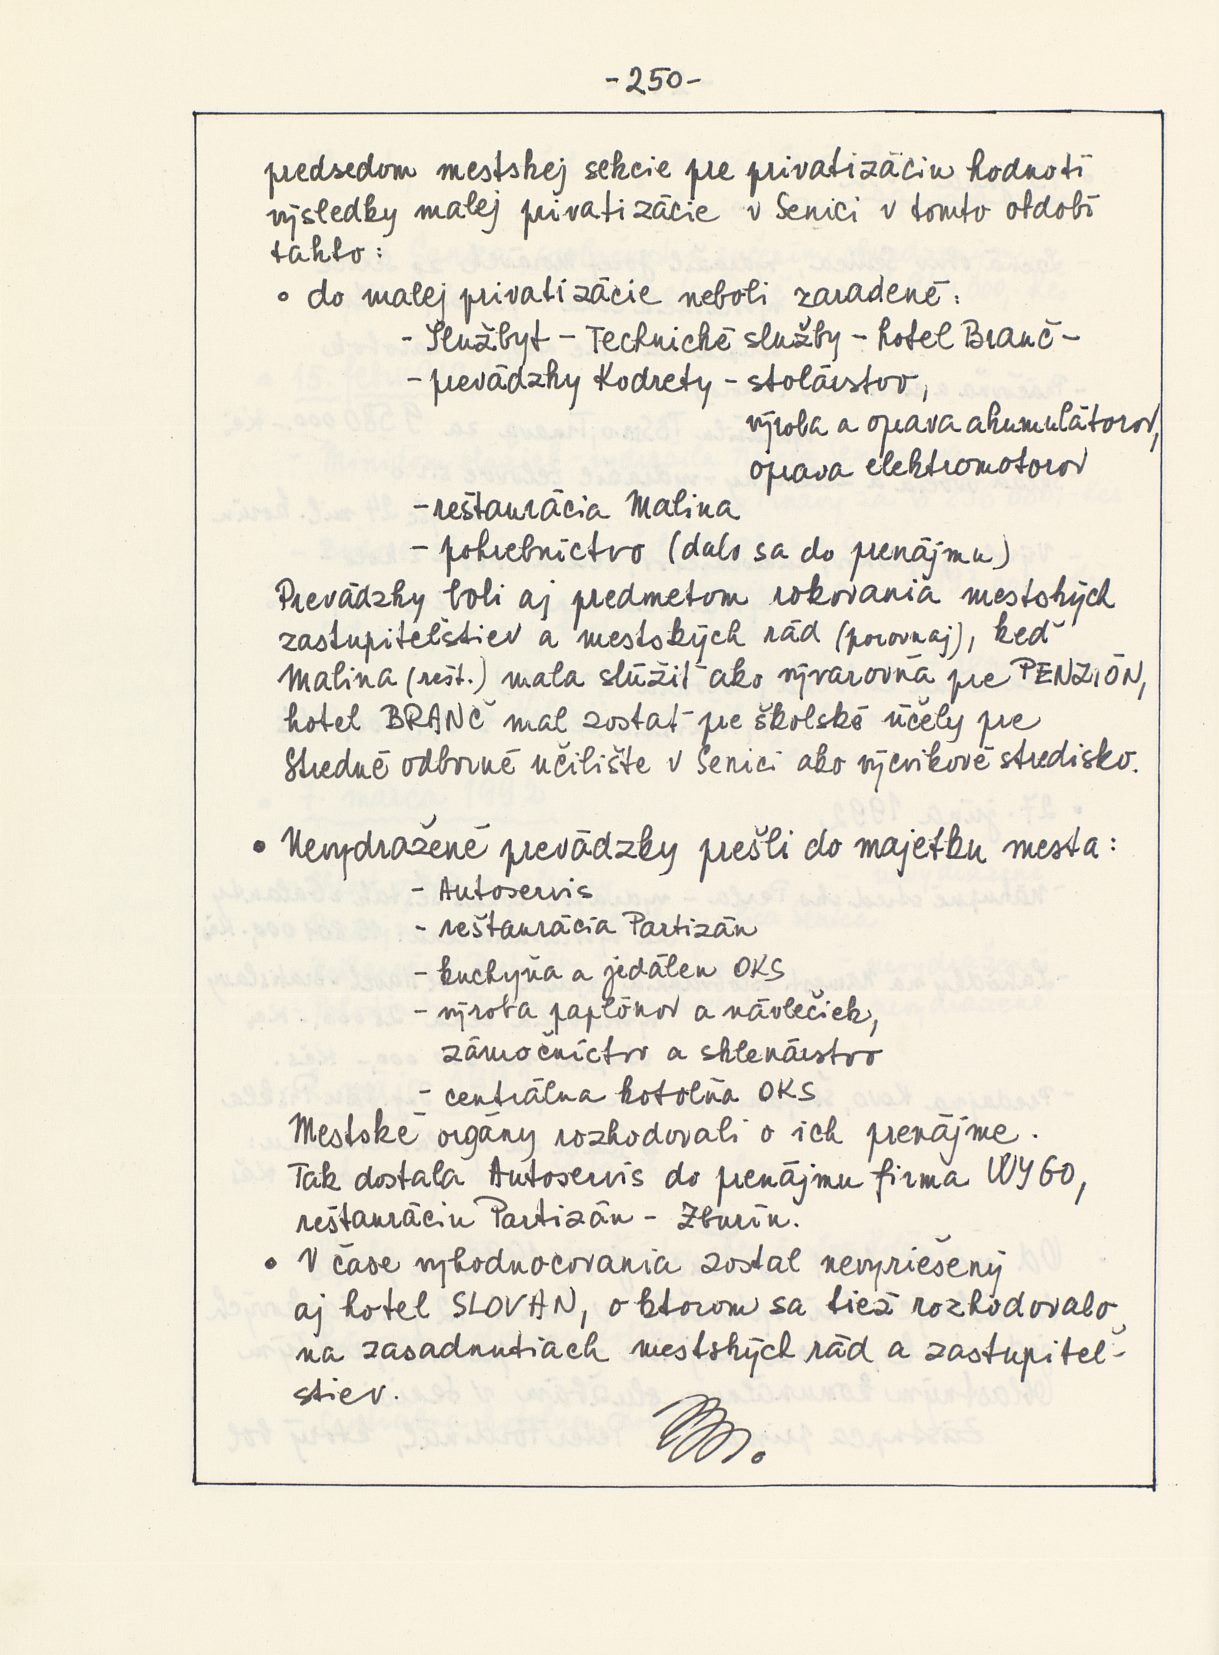 -250-
predsedom mestskej sekcie pre privatizáciu hodnotí
výsledky malej privatizácie v Senici v tomto období
takto:
• do malej privatizácie neboli zaradené:
- Službyt - Technické služby - hotel Branč -
- prevádzky Kodrety - stolárstvo,
výroba a oprava akumulátorov,
oprava elektromotorov
- reštaurácia Malina
- pohrebníctvo (dalo sa do prenájmu)
Prevádzky boli aj predmetom rokovania mestských
zastupiteľstiev a mestských rád (porovnaj), keď
Malina (rešt.) mala slúžiť ako vývarovňa pre PENZIÓN,
hotel BRANČ mal zostať pre školské účely pre
Stredné odborné učilište v Senici ako výcvikové stredisko.
• Nevydražené prevádzky prešli do majetku mesta:
- Autoservis
- reštaurácia Partizán
- kuchyňa a jedáleň OKS
- výroba paplónov a návlečiek,
zámočníctvo a sklenárstvo
- centrálna kotolňa OKS
Mestské orgány rozhodovali o ich prenájme.
Tak dostala Autoservis do prenájmu firma WYGO,
reštauráciu Partizán - Zburín.
• V čase vyhodnocovania zostal nevyriešený
aj hotel SLOVAN, o ktorom sa tiež rozhodovalo
na zasadnutiach mestských rád a zastupiteľ-
stiev.